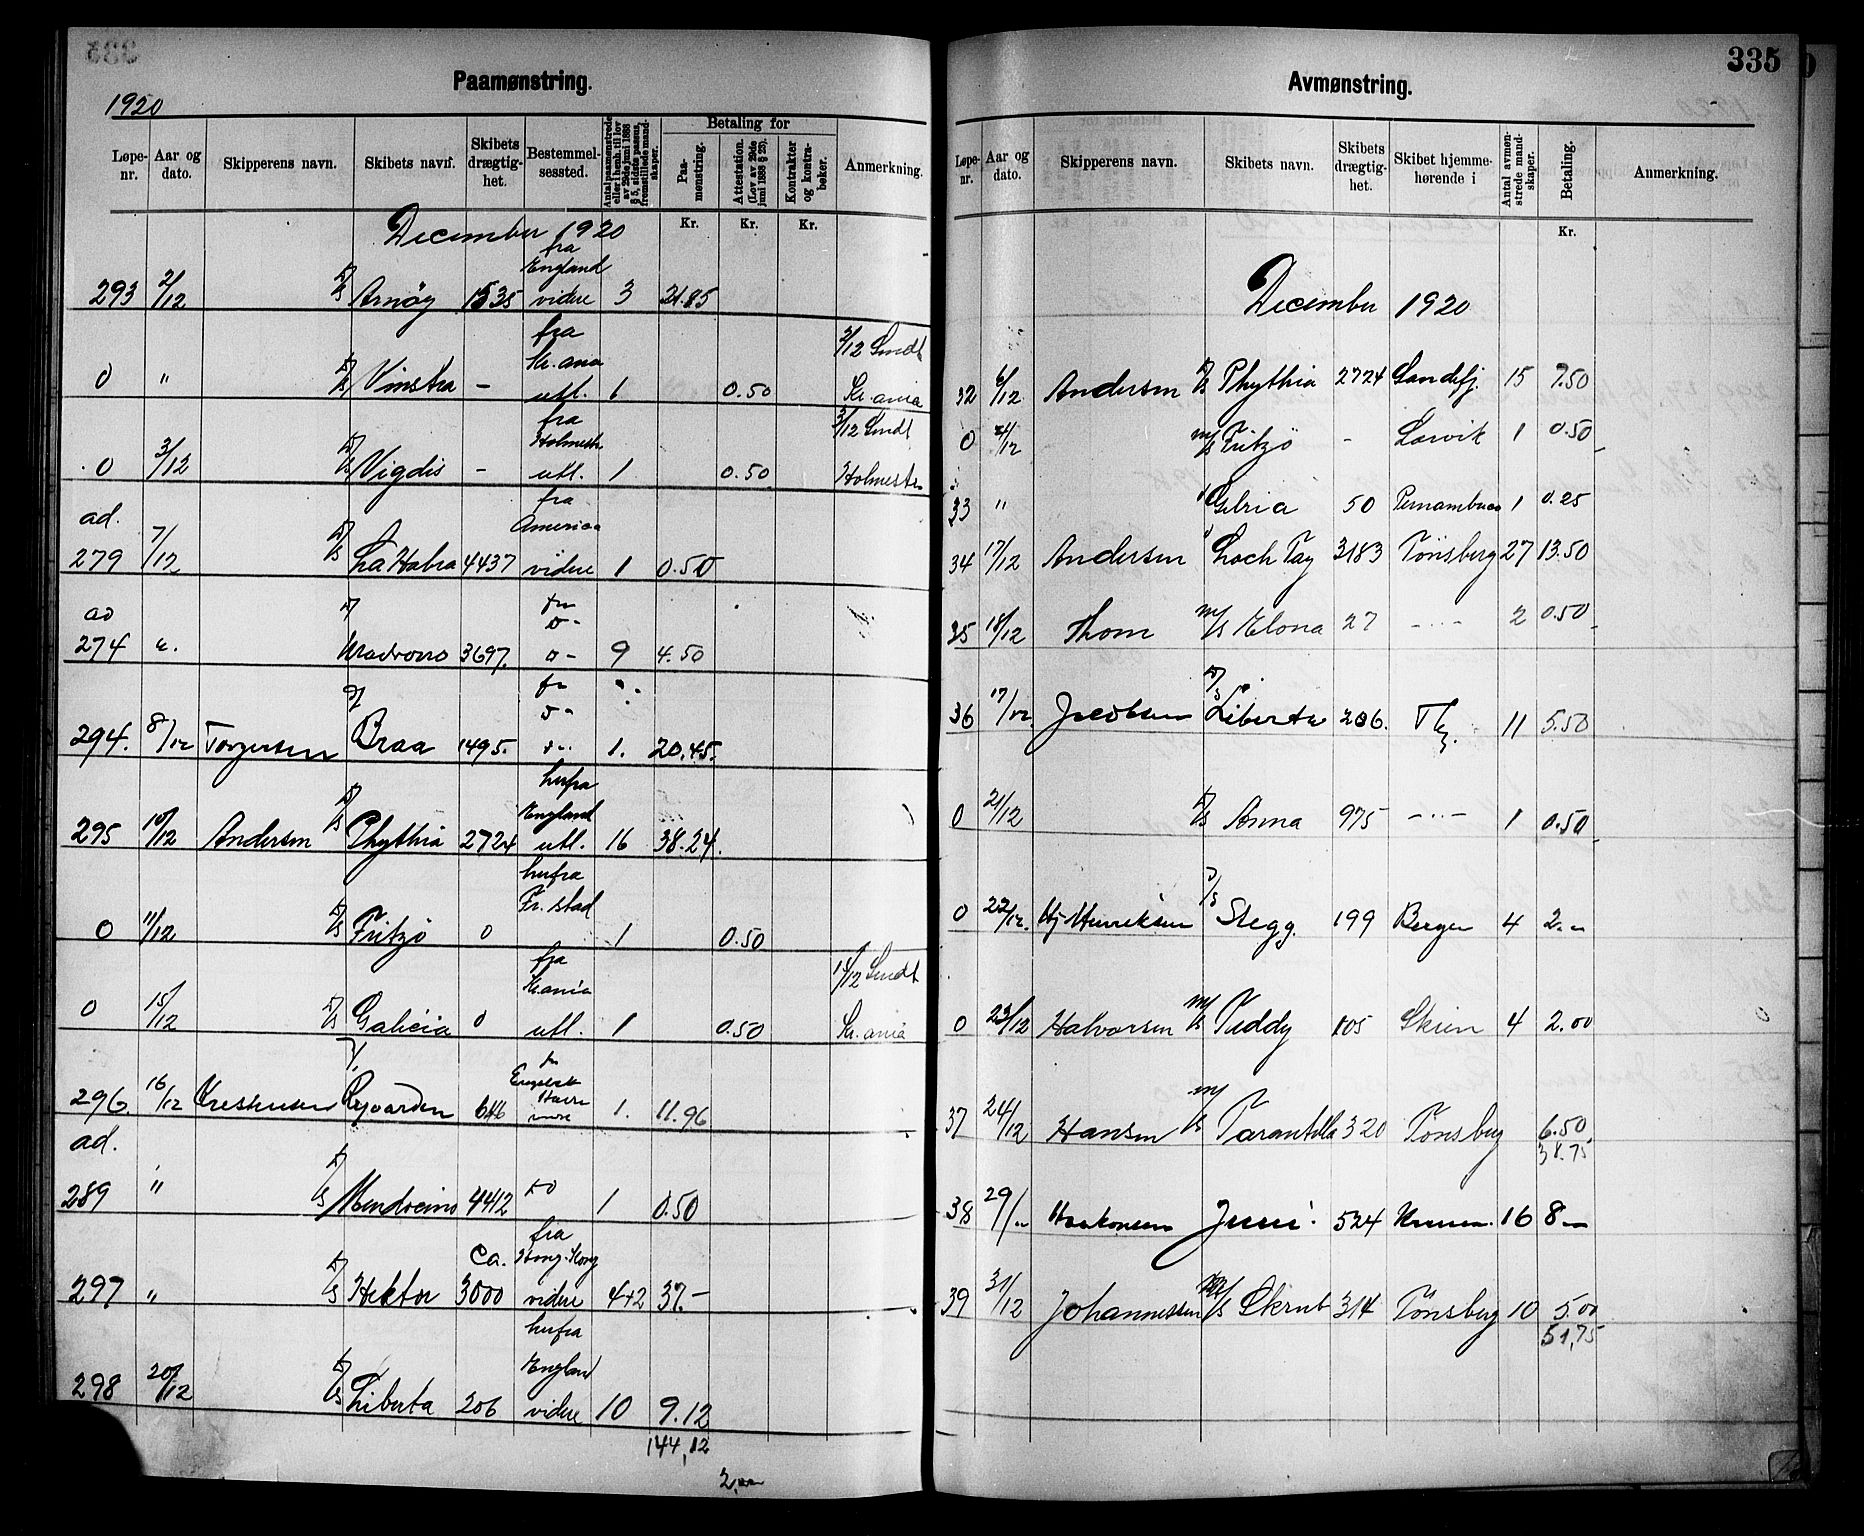 335
Paamønstring.
1920
Løpe-nr. Aar og dato. Skipperens navn. Skibets navn. Skibets drægtig-het. Bestemmel-sessted. Antal paamønstrede eller i henh. til lov av 29de juni 1888 § 5, sidste passus, fremstillede mand-skaper. Betaling for Paa-mønstring. Attestation. (Lov av 29de juni 1888 § 25). Kontrakter og kontra-bøker. Anmerkning.
Kr. Kr. Kr.
December 1920
fra
England
293 2/12 D/S Arnöy 1535 videre 3 21.85
fra
Kr.ania 2/12 Sendt
0 " D/S Vinstra - utl. 1 0.50 Kr.ania
fra
Holmestr. 3/12 Sendt
0 3/12 D/S Vigdis - utl. 1 0.50 Holmestr.
fra
ad. America
279 7/12 D/S La Habra 4437 videre 1 0.50
ad fra
o-
274 3697 o- 9 4.50
fra
o-
294. 8/12 Torgersen D/ Braa 1495. o- 1. 20.45.
herfra
England
295 10/12 Andersen D/S Phythia 2724 utl. 16 38.24.
herfra
Fr.stad
0 11/12 D/S Fritzö 0 1 0.50
fra
Kr.ania 14/12 Sendt
0 15/12 D/S Galicia 0 utl. 1 0.50 Kr.ania
296. 16/12 646 1. 11.96
ad.
289 " D/S Mendocino 4412 do 1 0.50
fra
ca. Hong-Kong
297 " D/S Hektor 3000 videre 4+2 37.-
herfra
England
298 20/12 D/S Liberta 206 videre 10 9.12
144,12
Avmønstring.
335
Løpe-nr. Aar og dato. Skipperens navn. Skibets navn. Skibets drægtig-het. Skibet hjemme-hørende i Antal avmøn-strede mand-skaper. Betaling. Anmerkning.
Kr.
December 1920
32 6/12 Andersen D/S Phythia 2724 Sandefj. 15 7.50
0 M/S Fritzö - Larvik 1 0.50
33 " 50 Pernambuco 1 0.25
34 17/12 Andersen Loch Tay 3183 Tönsberg 27 13.50
35 18/12 Thom M/S Elona 27 -"- 2 0.50
36 17/12 Jacobsen D/S Liberta 206. Tbg. 11 5.50
0 21/12 D/S Anna 975 -"- 1 0.50
0 22/12. Hj. Henriksen D/S Stegg. 199 Bergen 4 2.-
0 23/12 Halvorsen M/S Teddy 105 Skien 4 2.00
37 24/12 Hansen M/S Tarantella 320 Tönsberg 6.50
38.75
38 29/" Haakonsen Juni. 524 16 8-
39 31/12 Johannessen M/S Skrub 314 Tönsberg 10 5.00
51,75